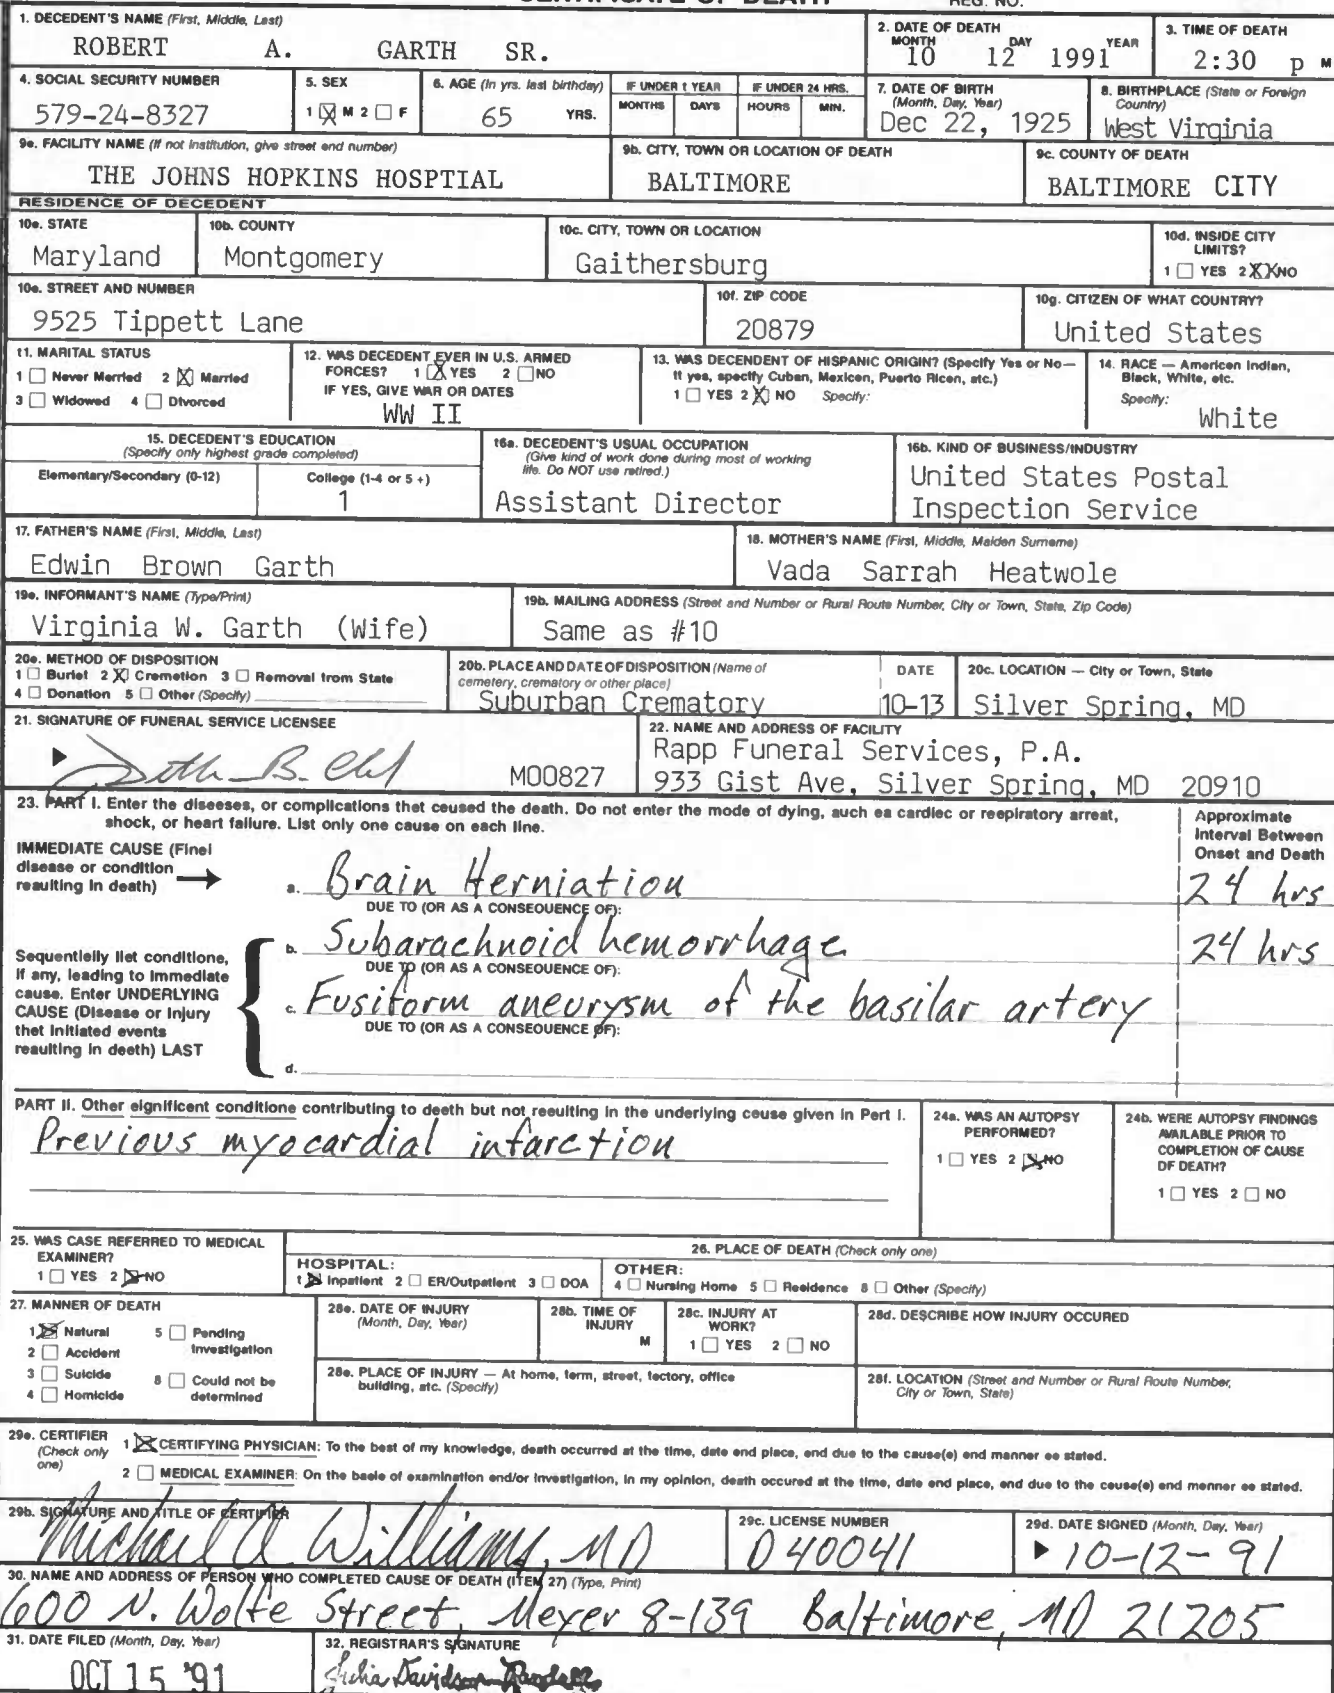 CERTIFICATE OF DEATH
REG. NO.
1. DECEDENT'S NAME (First, Middle, Last)
ROBERT A. GARTH SR.
2. DATE OF DEATH
MONTH DAY YEAR
10 12 1991
3. TIME OF DEATH
2:30 p M
4. SOCIAL SECURITY NUMBER
579-24-8327
5. SEX
1 ☒ M 2 ☐ F
6. AGE (In yrs. last birthday)
65 YRS.
IF UNDER 1 YEAR
MONTHS DAYS
IF UNDER 24 HRS.
HOURS MIN.
7. DATE OF BIRTH
(Month, Day, Year)
Dec 22, 1925
8. BIRTHPLACE (State or Foreign
Country)
West Virginia
9a. FACILITY NAME (If not institution, give street and number)
THE JOHNS HOPKINS HOSPTIAL
9b. CITY, TOWN OR LOCATION OF DEATH
BALTIMORE
9c. COUNTY OF DEATH
BALTIMORE CITY
RESIDENCE OF DECEDENT
10a. STATE
Maryland
10b. COUNTY
Montgomery
10c. CITY, TOWN OR LOCATION
Gaithersburg
10d. INSIDE CITY
LIMITS?
1 ☐ YES 2 ☒ NO
10e. STREET AND NUMBER
9525 Tippett Lane
10f. ZIP CODE
20879
10g. CITIZEN OF WHAT COUNTRY?
United States
11. MARITAL STATUS
1 ☐ Never Married 2 ☒ Married
3 ☐ Widowed 4 ☐ Divorced
12. WAS DECEDENT EVER IN U.S. ARMED
FORCES? 1 ☒ YES 2 ☐ NO
IF YES, GIVE WAR OR DATES
WW II
13. WAS DECENDENT OF HISPANIC ORIGIN? (Specify Yes or No—
If yes, specify Cuban, Mexican, Puerto Rican, etc.)
1 ☐ YES 2 ☒ NO Specify:
14. RACE — American Indian,
Black, White, etc.
Specify:
White
15. DECEDENT'S EDUCATION
(Specify only highest grade completed)
Elementary/Secondary (0-12) College (1-4 or 5 +)
1
16a. DECEDENT'S USUAL OCCUPATION
(Give kind of work done during most of working
life. Do NOT use retired.)
Assistant Director
16b. KIND OF BUSINESS/INDUSTRY
United States Postal
Inspection Service
17. FATHER'S NAME (First, Middle, Last)
Edwin Brown Garth
18. MOTHER'S NAME (First, Middle, Maiden Surname)
Vada Sarrah Heatwole
19a. INFORMANT'S NAME (Type/Print)
Virginia W. Garth (Wife)
19b. MAILING ADDRESS (Street and Number or Rural Route Number, City or Town, State, Zip Code)
Same as #10
20a. METHOD OF DISPOSITION
1 ☐ Burial 2 ☒ Cremation 3 ☐ Removal from State
4 ☐ Donation 5 ☐ Other (Specify)
20b. PLACE AND DATE OF DISPOSITION (Name of
cemetery, crematory or other place)
Suburban Crematory
DATE
10-13
20c. LOCATION — City or Town, State
Silver Spring, MD
21. SIGNATURE OF FUNERAL SERVICE LICENSEE
M00827
22. NAME AND ADDRESS OF FACILITY
Rapp Funeral Services, P.A.
933 Gist Ave, Silver Spring, MD 20910
23. PART I. Enter the diseases, or complications that caused the death. Do not enter the mode of dying, such as cardiac or respiratory arrest,
shock, or heart failure. List only one cause on each line.
Approximate
Interval Between
Onset and Death
IMMEDIATE CAUSE (Final
disease or condition
resulting in death)
a. Brain Herniation 24 hrs
DUE TO (OR AS A CONSEQUENCE OF):
b. Subarachnoid hemorrhage 24 hrs
DUE TO (OR AS A CONSEQUENCE OF):
Sequentially list conditions,
if any, leading to immediate
cause. Enter UNDERLYING
CAUSE (Disease or injury
that initiated events
resulting in death) LAST
c. Fusiform aneurysm of the basilar artery
DUE TO (OR AS A CONSEQUENCE OF):
d.
PART II. Other significant conditions contributing to death but not resulting in the underlying cause given in Part I.
Previous myocardial infarction
24a. WAS AN AUTOPSY
PERFORMED?
1 ☐ YES 2 ☒ NO
24b. WERE AUTOPSY FINDINGS
AVAILABLE PRIOR TO
COMPLETION OF CAUSE
OF DEATH?
1 ☐ YES 2 ☐ NO
25. WAS CASE REFERRED TO MEDICAL
EXAMINER?
1 ☐ YES 2 ☒ NO
26. PLACE OF DEATH (Check only one)
HOSPITAL:
1 ☒ Inpatient 2 ☐ ER/Outpatient 3 ☐ DOA
OTHER:
4 ☐ Nursing Home 5 ☐ Residence 6 ☐ Other (Specify)
27. MANNER OF DEATH
1 ☒ Natural 5 ☐ Pending
Investigation
2 ☐ Accident
3 ☐ Suicide 6 ☐ Could not be
4 ☐ Homicide determined
28a. DATE OF INJURY
(Month, Day, Year)
28b. TIME OF
INJURY
M
28c. INJURY AT
WORK?
1 ☐ YES 2 ☐ NO
28d. DESCRIBE HOW INJURY OCCURED
28e. PLACE OF INJURY — At home, farm, street, factory, office
building, etc. (Specify)
28f. LOCATION (Street and Number or Rural Route Number,
City or Town, State)
29a. CERTIFIER
(Check only
one)
1 ☒ CERTIFYING PHYSICIAN: To the best of my knowledge, death occurred at the time, date and place, and due to the cause(s) and manner as stated.
2 ☐ MEDICAL EXAMINER: On the basis of examination and/or investigation, in my opinion, death occured at the time, date and place, and due to the cause(s) and manner as stated.
29b. SIGNATURE AND TITLE OF CERTIFIER
Michael A Williams, MD
29c. LICENSE NUMBER
D40041
29d. DATE SIGNED (Month, Day, Year)
10-12-91
30. NAME AND ADDRESS OF PERSON WHO COMPLETED CAUSE OF DEATH (ITEM 27) (Type, Print)
600 N. Wolfe Street, Meyer 8-139 Baltimore, MD 21205
31. DATE FILED (Month, Day, Year)
OCT 15 '91
32. REGISTRAR'S SIGNATURE
Julia Davidson-Randall